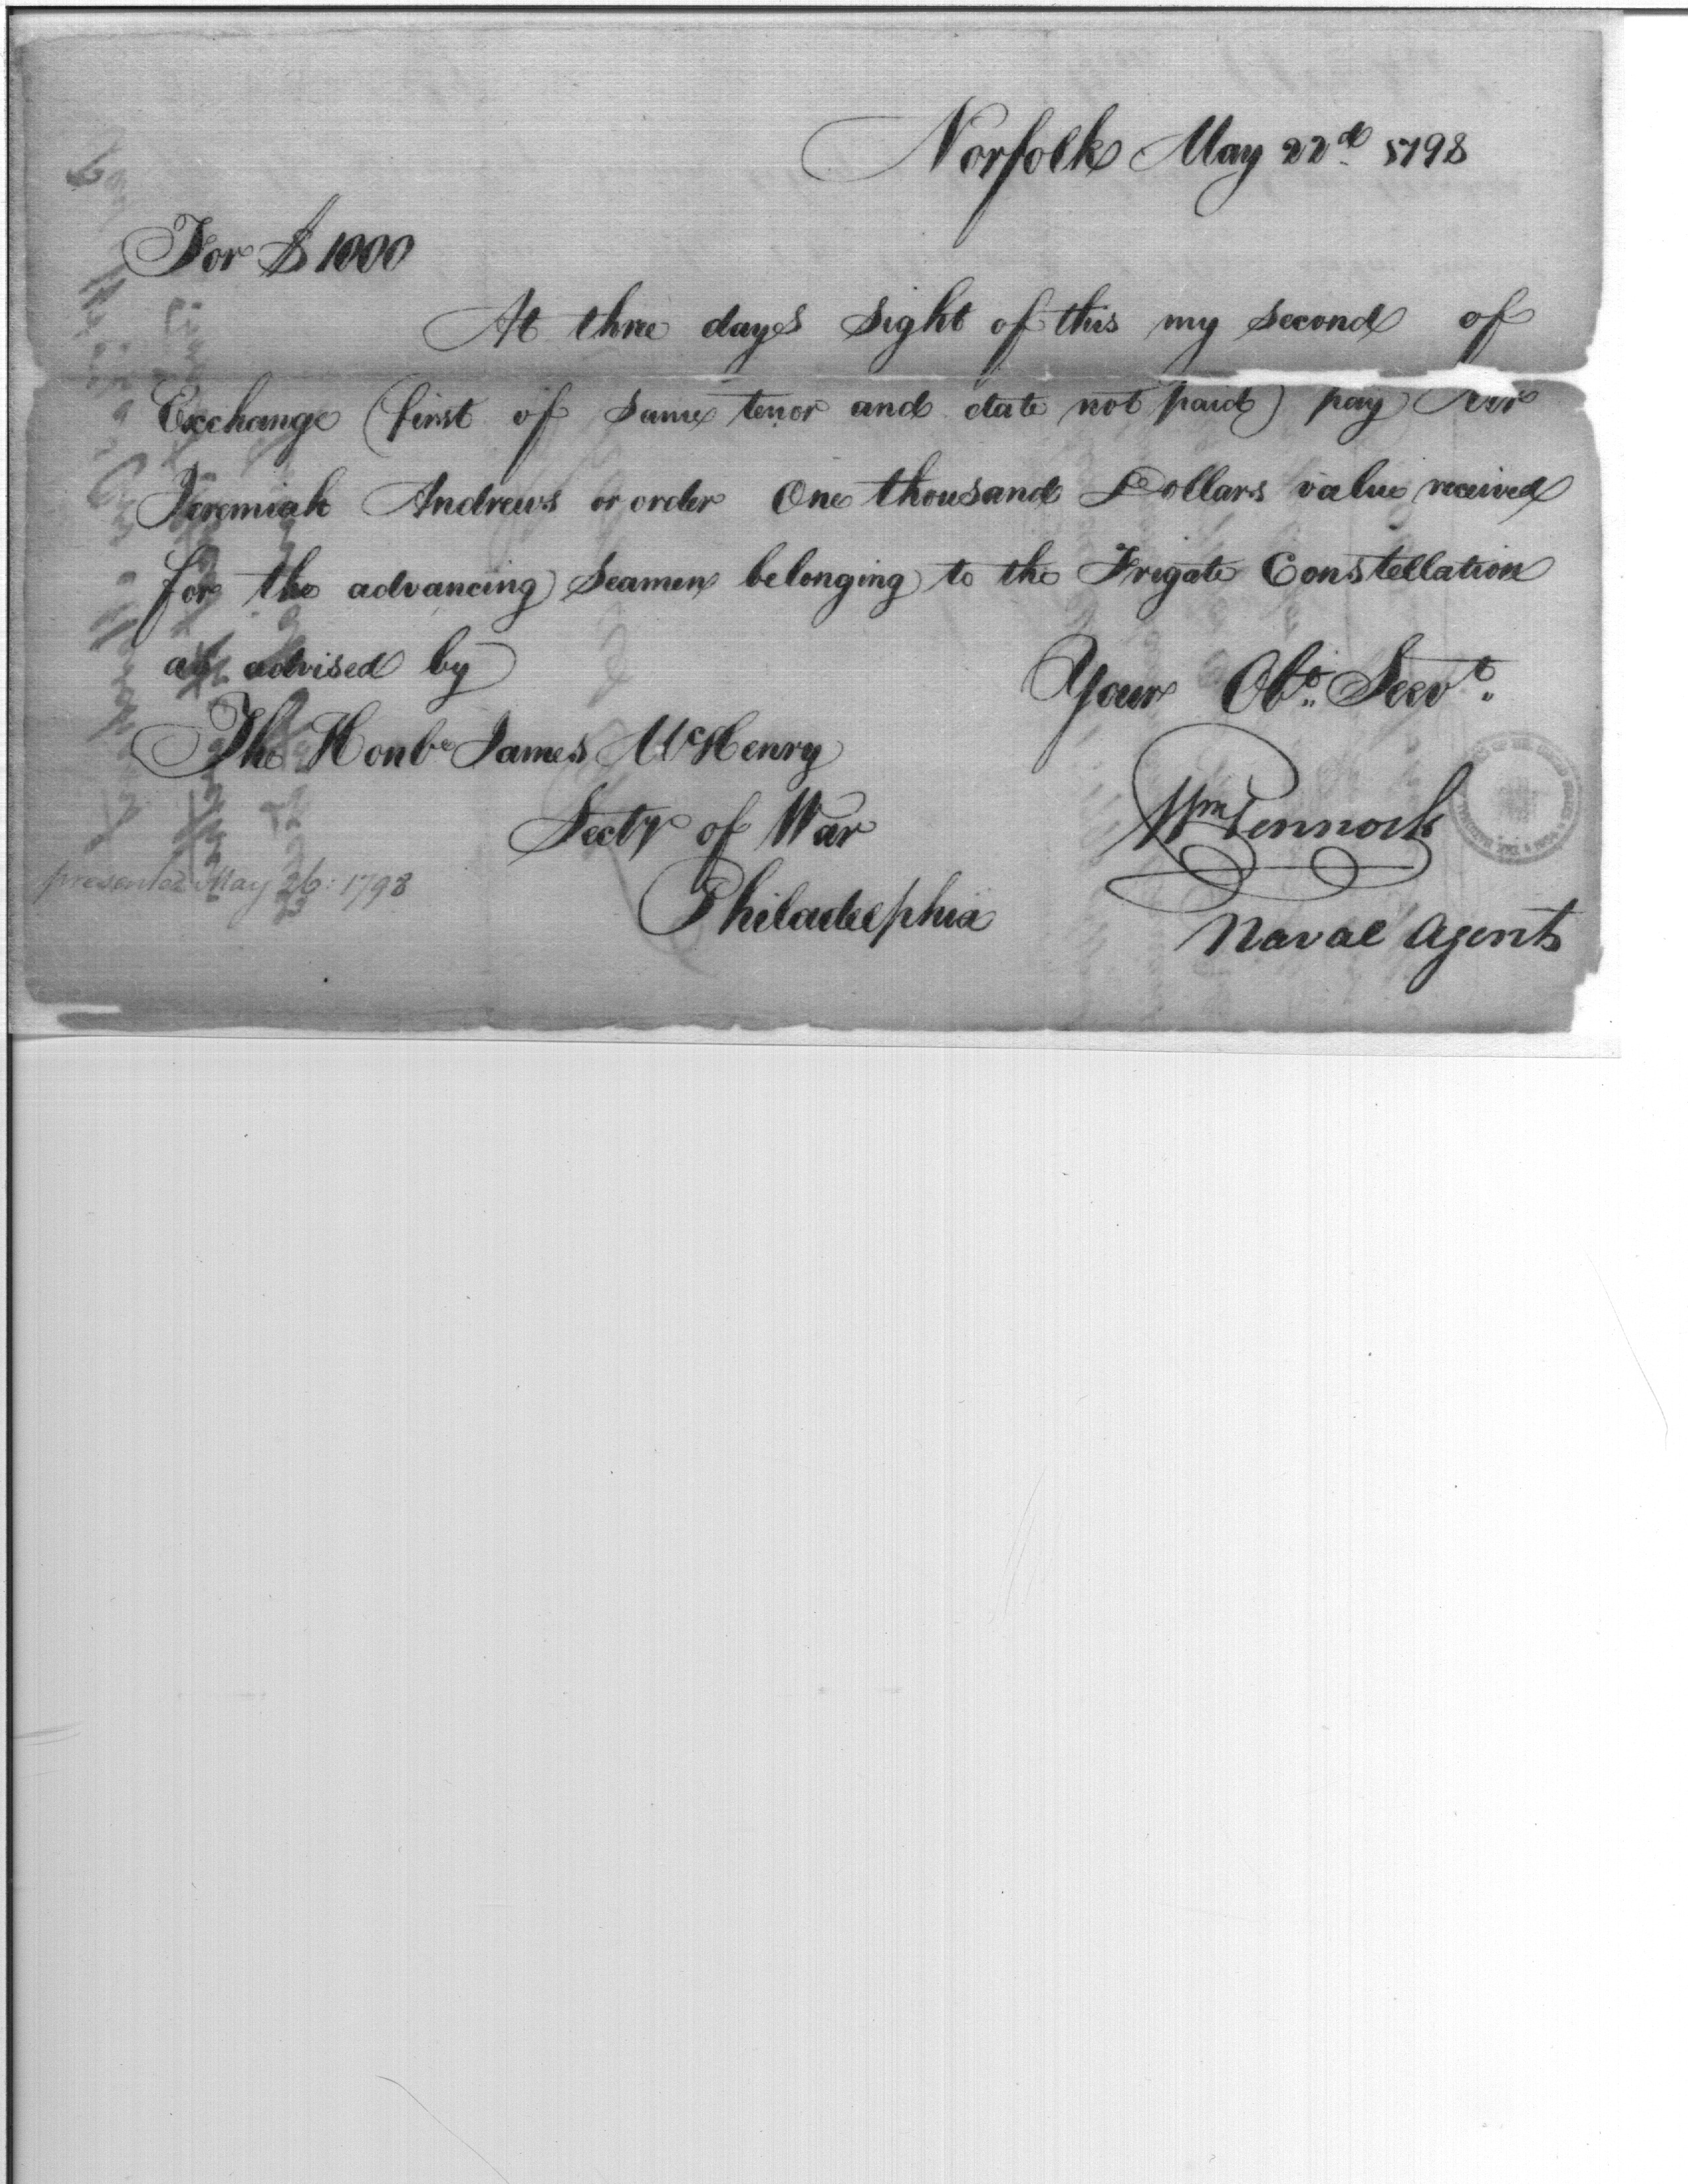 Norfolk May 22d. 1798
For $1000
At three days Sight of this my second of
Exchange (first of same tenor and date not paid) pay Mr
Jeremiah Andrews or order One thousand Dollars value received
for the advancing Seamen belonging to the Frigate Constellation
as advised by
Your Obt. Servt.
The Honbe James McHenry
Secty of War
Philadelphia
Wm Pennock
Naval Agent
presented May 26: 1798